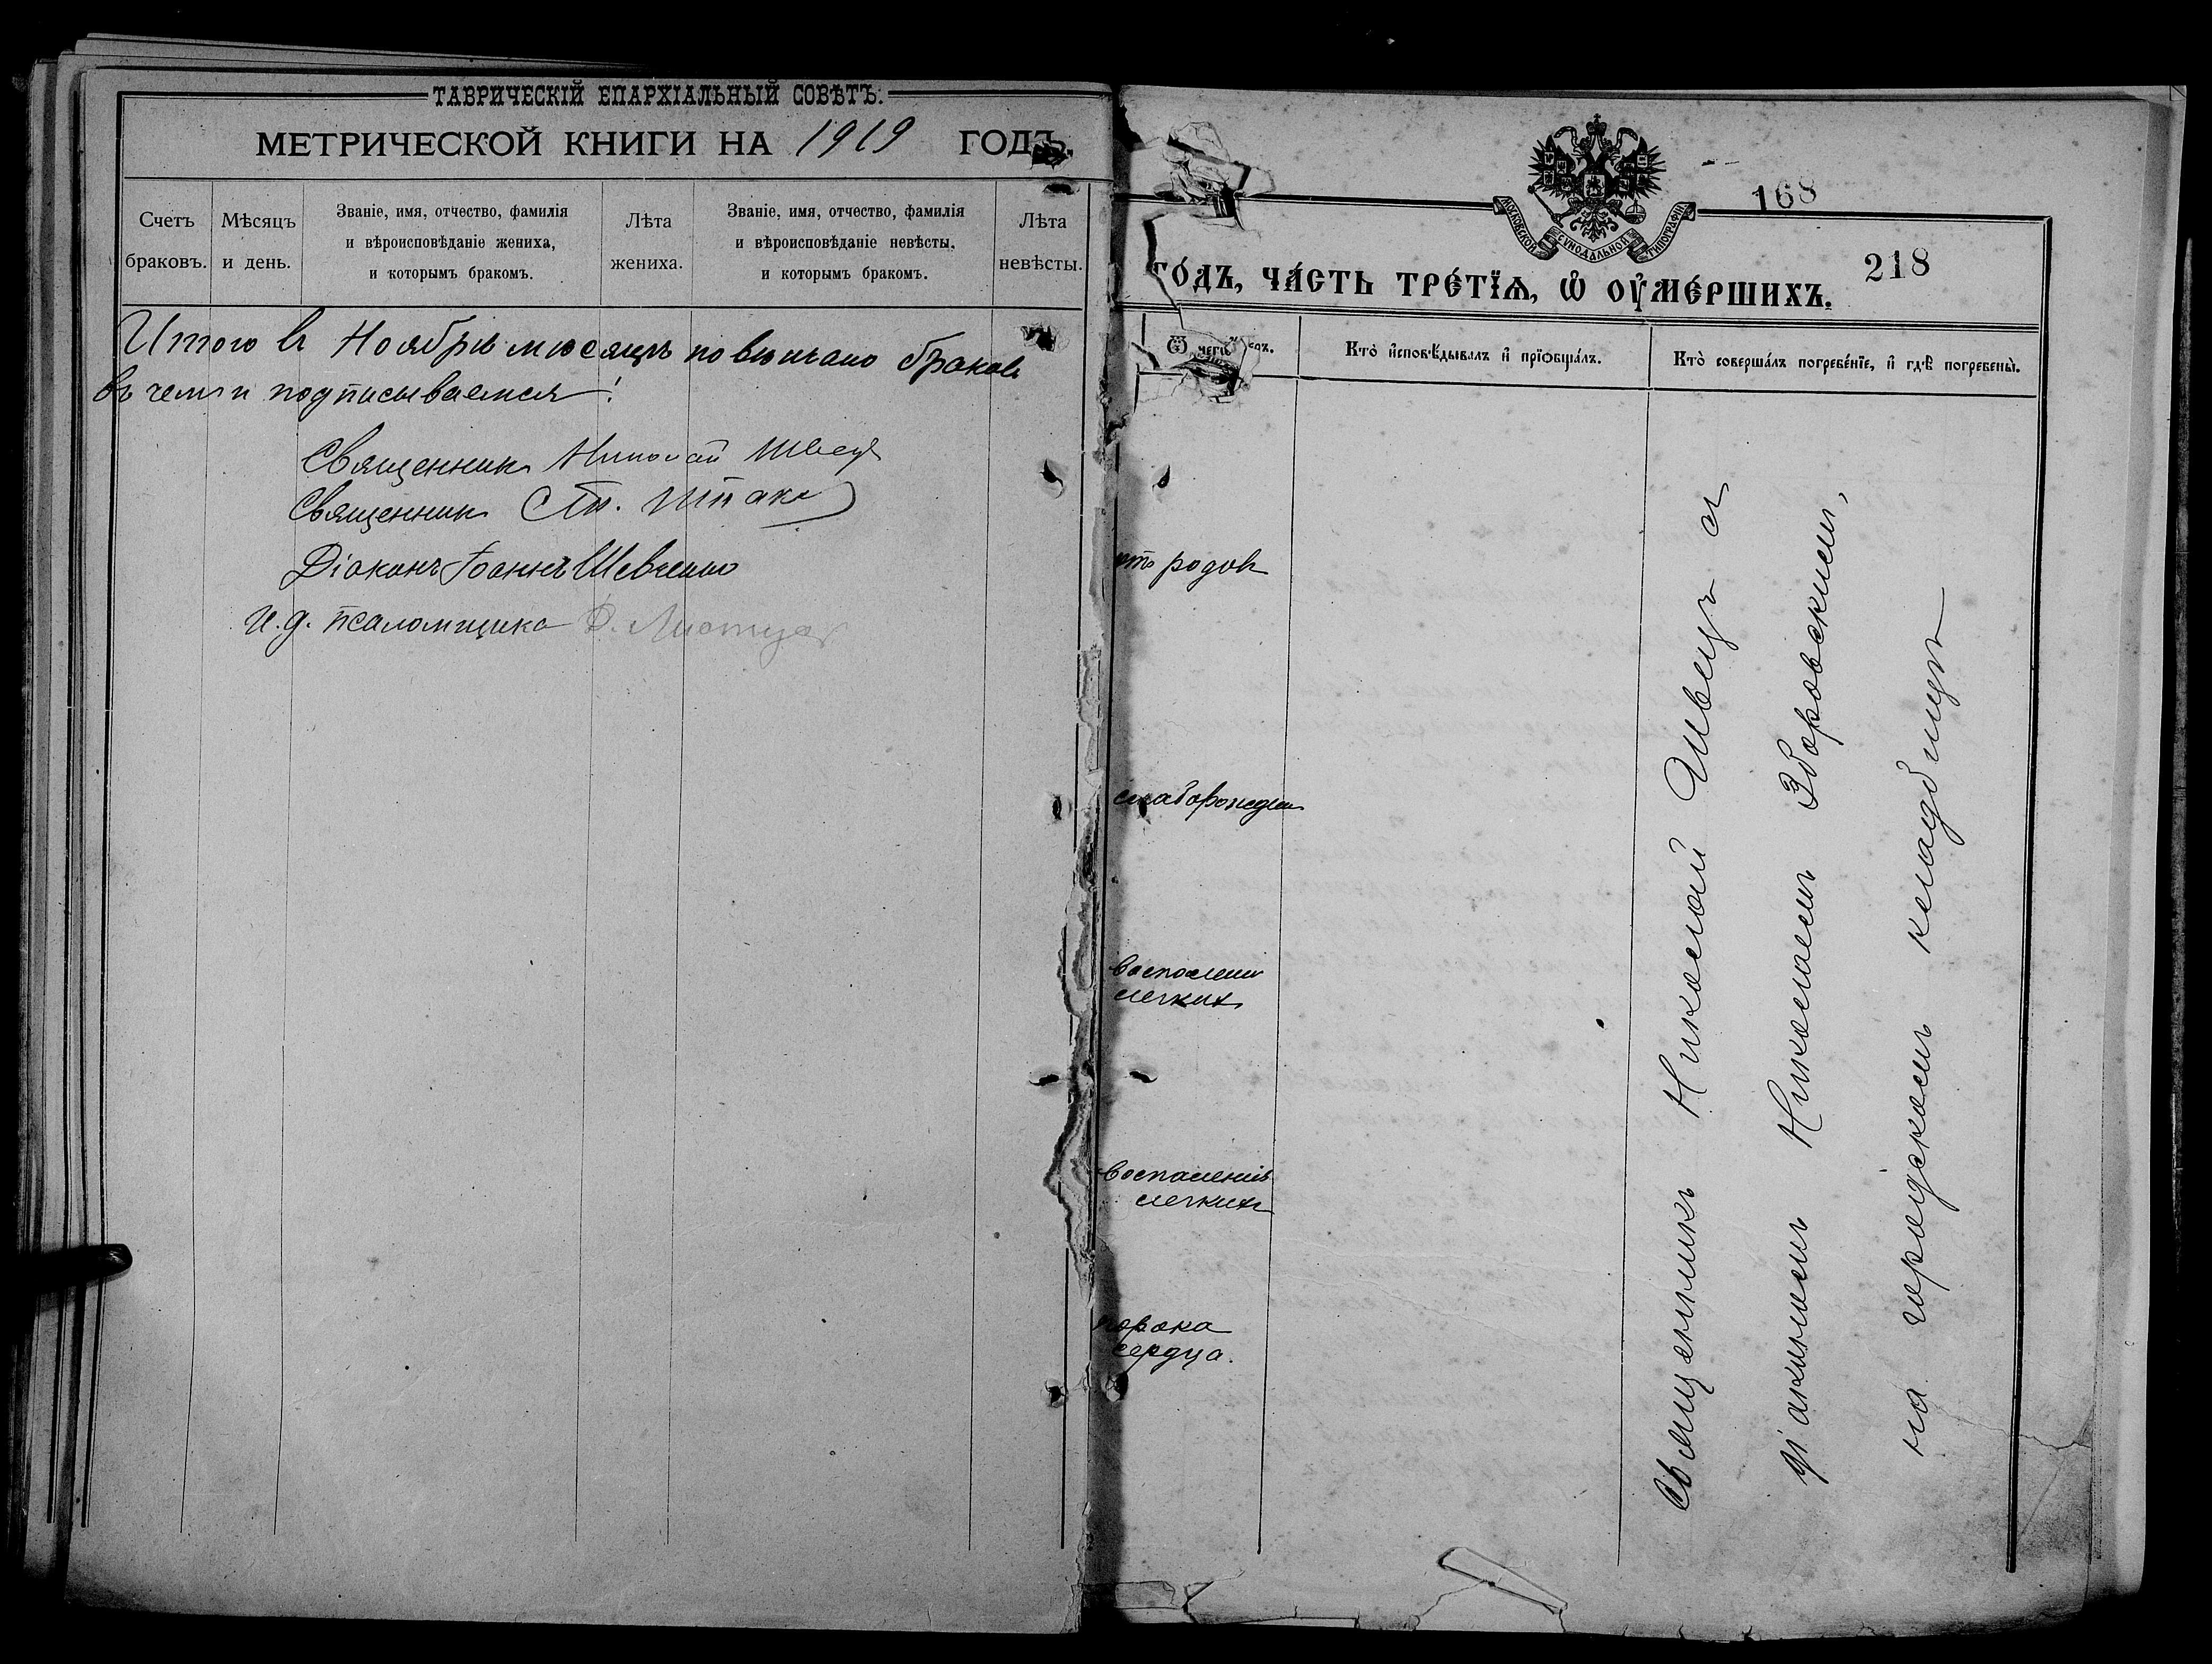 ТАВРИЧЕСКІЙ ЕПАРХІАЛЬНЫЙ СОВѢТЪ.
МЕТРИЧЕСКОЙ КНИГИ НА 1919 ГОДЪ.
Счетъ браковъ.
Мѣсяцъ и день.
Званіе, имя, отчество, фамилія
и вѣроисповѣданіе жениха,
и которымъ бракомъ.
Лѣта жениха.
Званіе, имя, отчество, фамилія
и вѣроисповѣданіе невѣсты,
и которымъ бракомъ.
Лѣта невѣсты.
Итого въ Ноябрѣ мѣсяцѣ повѣнчано браковъ
въ чемъ и подписываемся:
Священникъ Николай Швецъ
Священникъ Шпакъ
Діаконъ Іоаннъ Шевченко
И. д. псаломщика
МОСКОВСКОЙ СѴНОДАЛЬНОЙ ТИПОГРАФІИ
168
218
го́дъ, ча́сть тре́тїѧ, ѡ҆ ᲂу҆ме́ршихъ.
Ѿ чегѡ̀
Кто̀ и҆сповѣ́дывалъ и҆ прїѡбща́лъ.
Кто̀ соверша́лъ погребе́нїе, и҆ гдѣ̀ погребены̀.
отъ родовъ
слаборожден
воспаленія
легкихъ
воспаленія
легкихъ
порока
сердца.
Священникъ Николай Швецъ съ
діакономъ Николаемъ Зборовскимъ,
на городскомъ кладбищѣ